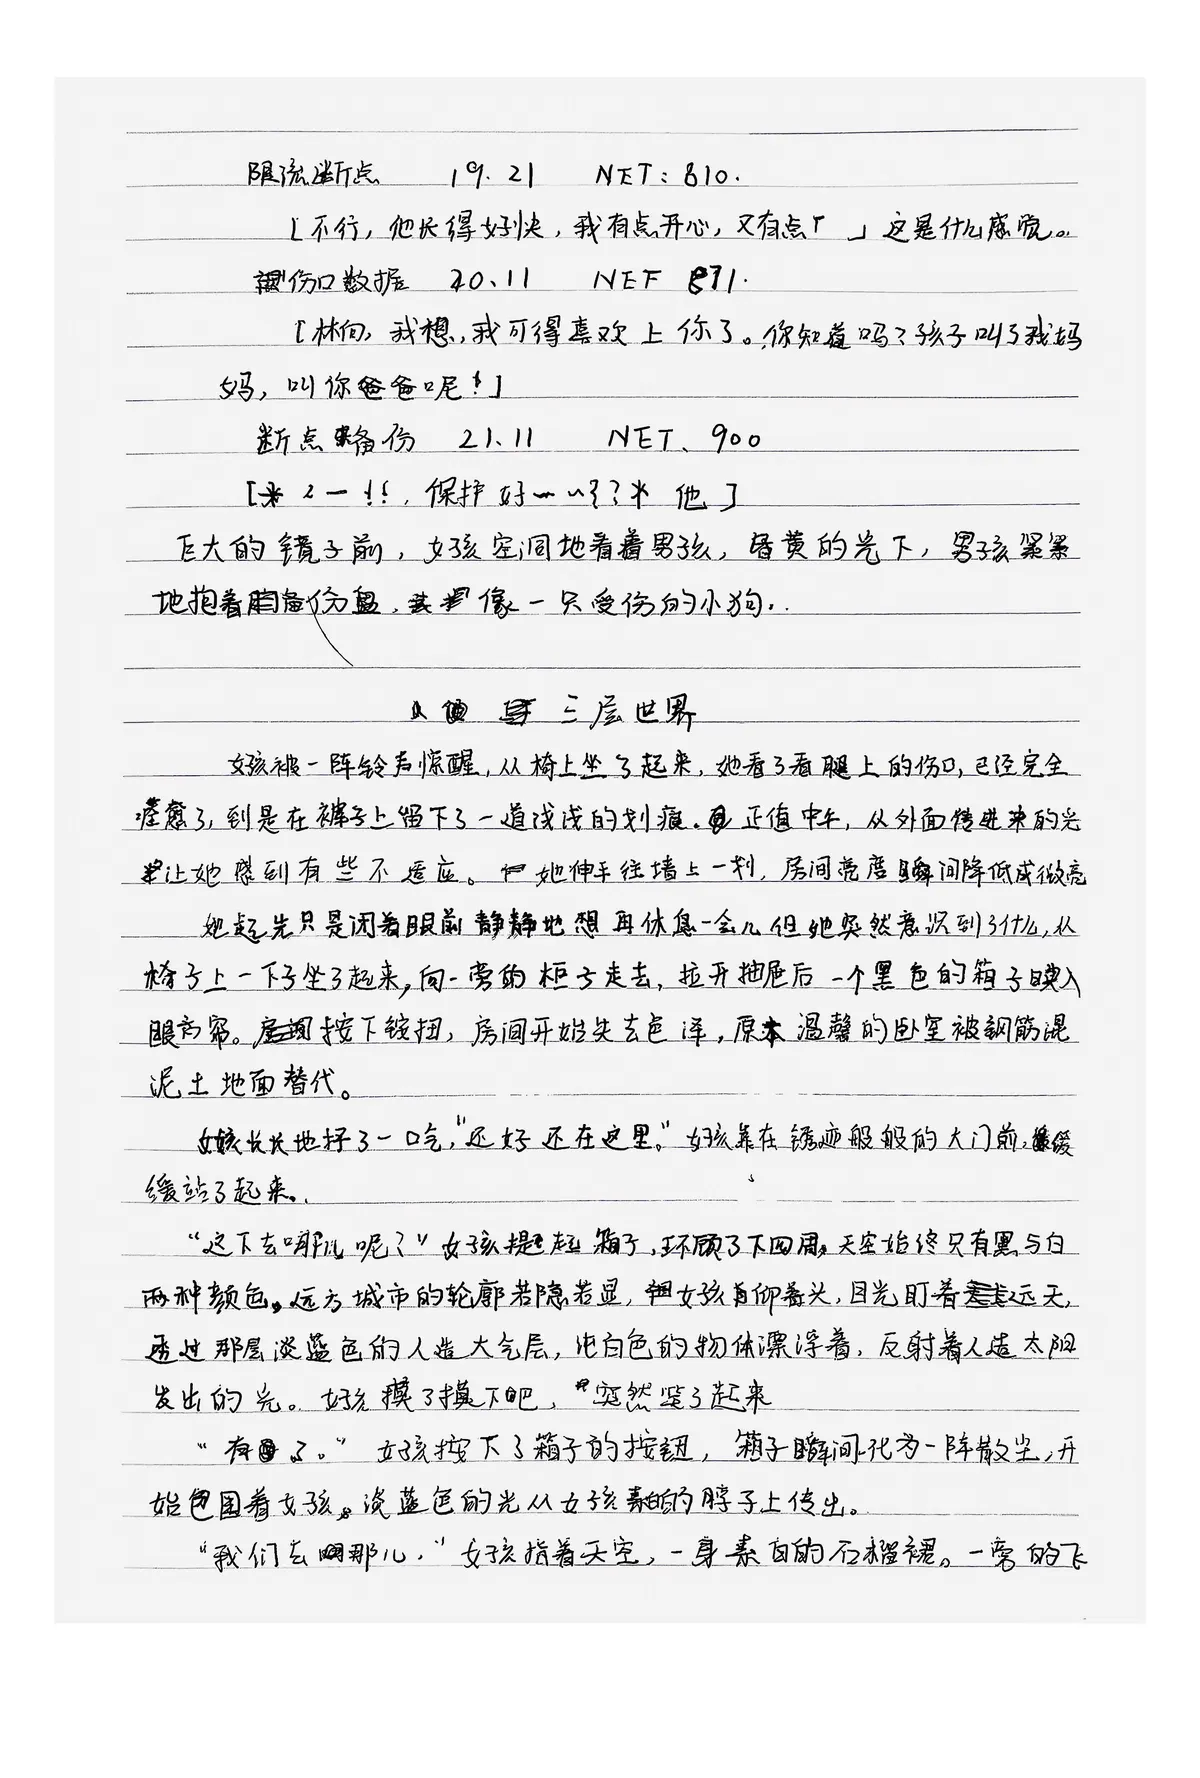 限流断点 19.21 NET:810.
「不行，他长得好快，我有点开心，又有点「 」这是什么感觉。
伤口数据 20.11 NEF 871.
「林向，我想，我可得喜欢上你了。你知道吗？孩子叫了我妈
妈，叫你爸爸呢！」
断点备份 21.11 NET、900
保护好 他」
巨大的镜子前，女孩空洞地看着男孩，昏黄的光下，男孩紧紧
地抱着备份盘，像一只受伤的小狗..
三层世界
女孩被一阵铃声惊醒，从椅上坐了起来，她看了看腿上的伤口，已经完全
痊愈了，到是在裤子上留下了一道浅浅的划痕.正值中午，从外面传进来的光
让她感到有些不适应。她伸手往墙上一划，房间亮度瞬间降低成微亮
她起先只是闭着眼前静静地想再休息一会儿但她突然意识到了什么，从
椅子上一下子坐了起来，向一旁的柜子走去，拉开抽屉后一个黑色的箱子映入
眼帘。按下按扭，房间开始失去色泽，原本温馨的卧室被钢筋混
泥土地面替代。
女孩长长地抒了一口气，"还好还在这里。"女孩靠在锈迹般般的大门前，缓
缓站了起来。.
"这下去哪儿呢？"女孩提起箱子，环顾了下四周，天空始终只有黑与白
两种颜色，远方城市的轮廓若隐若显，女孩仰着头，目光盯着远天，
透过那层淡蓝色的人造大气层，纯白色的物体漂浮着，反射着人造太阳
发出的光。女孩摸了摸下吧，突然笑了起来
"有了。"女孩按下了箱子的按钮，箱子瞬间化为一阵散尘，开
始包围着女孩。淡蓝色的光从女孩的脖子上传出。
"我们去那儿，"女孩指着天空，一身素白的石榴裙。一旁的飞